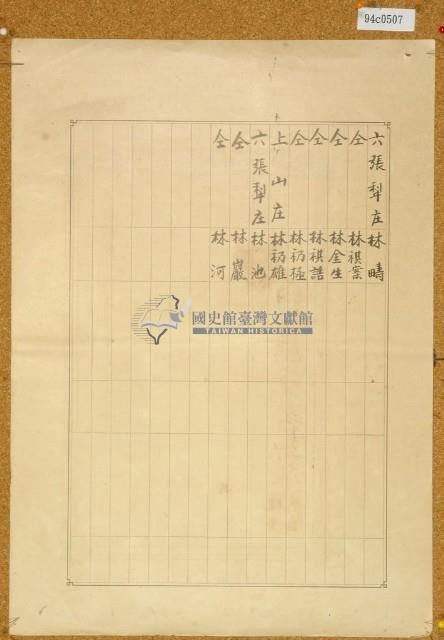 94c0507
六張犁庄 林疇
仝 林祺案
仝 林金生
仝 林祺譜
仝 林礽極
上山庄 林礽雄
六張犁庄 林池
仝 林巖
仝 林河
國史館臺灣文獻館
TAIWAN HISTORICA